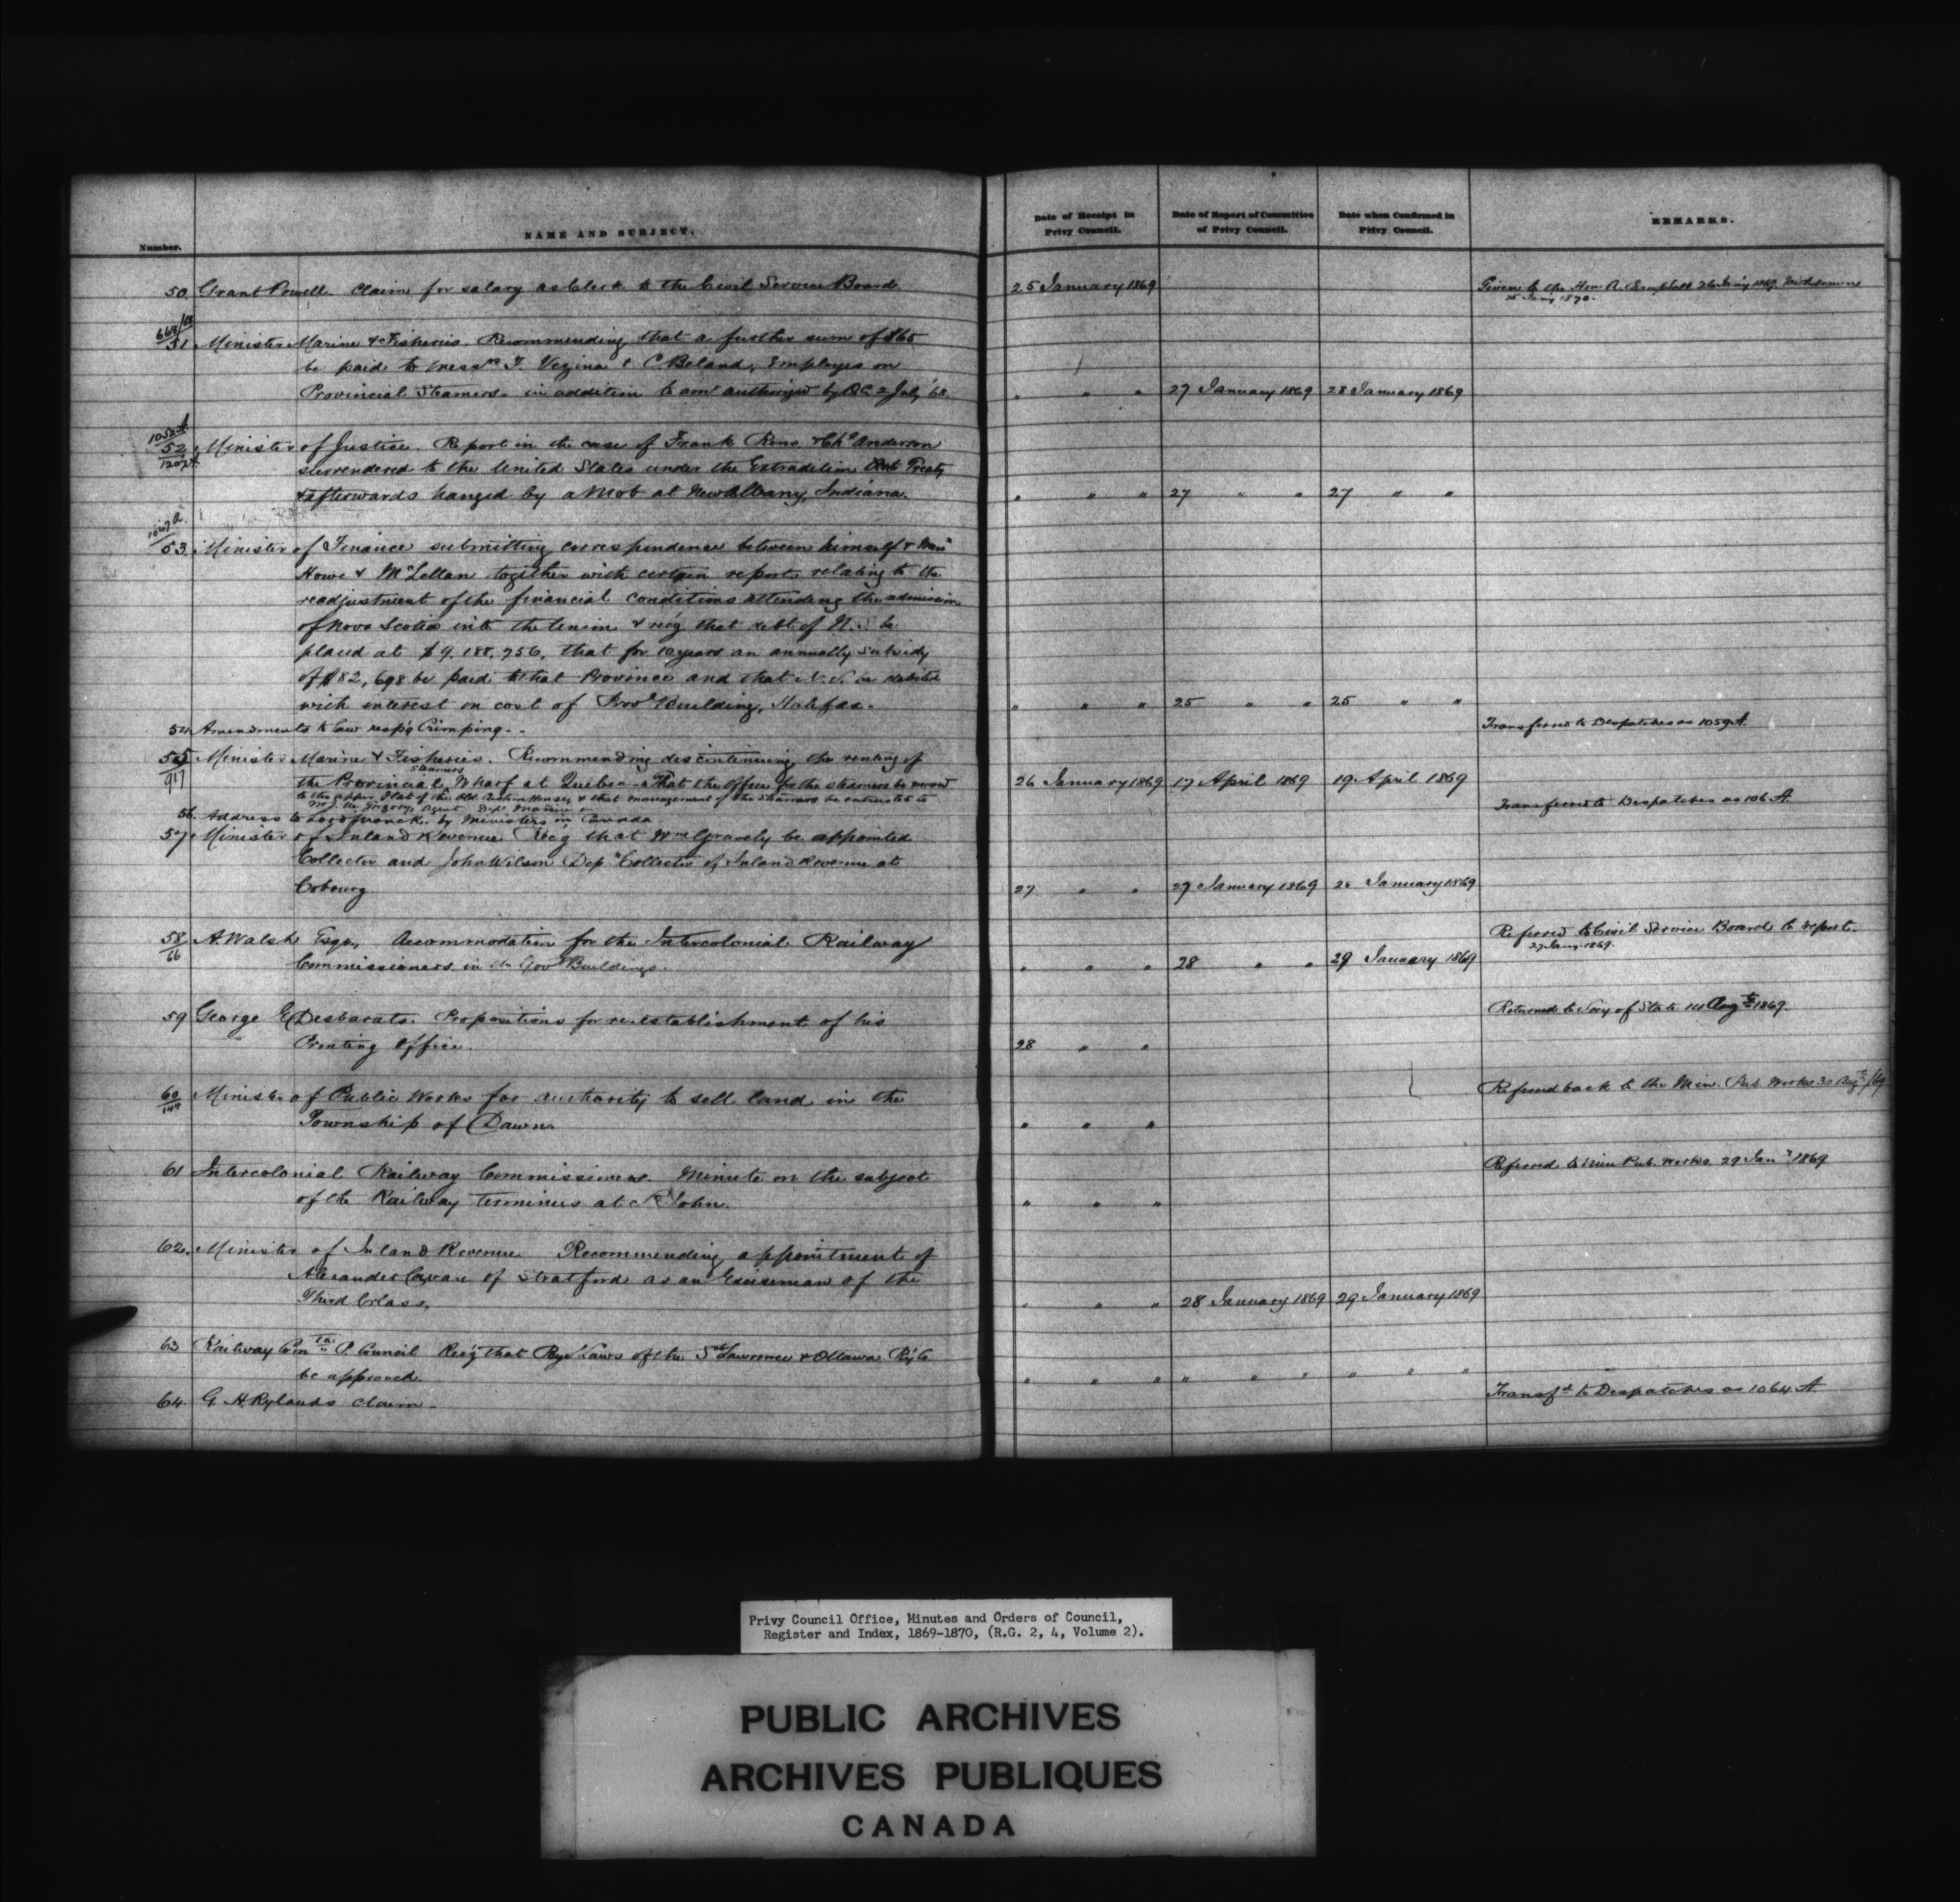 Number.
NAME AND SUBJECT.
Date of Receipt in Privy Council.
Date of Report of Committee of Privy Council.
Date when Confirmed in Privy Council.
REMARKS.
50 Grant Powell. Claim for salary as Clerk to the Civil Service Board 25 January 1869 Given to the Hon. A. Campbell 26 Jan'y 1869.
51 Minister Marine & Fisheries. Recommending that a further sum of $60
be paid to Messrs F. Vezina & C. Beland, Employes on
Provincial Steamers. in addition to amt authorized by O.C. 2 July '68 " " " 27 January 1869 28 January 1869
1052 A
52 Minister of Justice. Report in the case of Frank Reno & Chs Anderson
surrendered to the United States under the Extradition Treaty
& afterwards hanged by a Mob at New Albany, Indiana. " " " 27 " " 27 " "
53. Minister of Finance submitting correspondence between himself & Messrs
Howe & McLellan together with certain reports relating to the
readjustment of the financial conditions attending the admission
of Nova Scotia into the Union & rec'g that debt of N.S. be
placed at $9,188,756, that for 10 years an annually subsidy
of $82,698 be paid to that Province and that N.S. be debited
with interest on cost of Provl Building, Halifax. " " " 25 " " 25 " "
54 Amendments to law resp'g Crimping. Transferred to Despatches as 1059 A.
55 Minister Marine & Fisheries. Recommending discontinuing the renting of
917 the Provincial Steamers Wharf at Quebec - That the Office for the steamers be moved 26 January 1869 17 April 1869 19 April 1869
to the upper flat of the Old Custom House, & that management of the steamers be entrusted to
Mr J. U. Gregory, Agent Dept Marine
56. Address to by Ministers in Canada Transferred to Despatches as 106 A.
57 Minister of Inland Revenue Rec'g that Wm Gravely be appointed
Collector and John Wilson Depy Collector of Inland Revenue at
Cobourg. 27 " " 27 January 1869 28 January 1869
58 A. Walsh Esqr. Accommodation for the Intercolonial Railway Referred to Civil Service Board to report.
27 Jany 1869.
66 Commissioners in the Govt Buildings. " " " 28 " " 29 January 1869
59 George E Desbarats. Propositions for re-establishment of his Returned to Secy of State 14 Augt 1869.
Printing Office. 28 " "
60 Minister of Public Works for authority to sell land in the Referred back to the Min. Pub. Works 30 Augt/69
Township of Dawn. " " "
61 Intercolonial Railway Commissioners. Minute on the subject Referred to Min Pub. Works 29 Jany 1869
of the Railway terminus at St John. " " "
62. Minister of Inland Revenue Recommending appointment of
Alexander Cavan of Stratford as an Exciseman of the
Third Class. " " " 28 January 1869 29 January 1869
63 Railway Comtee P. Council Rec'g that Bye Laws of the St Lawrence & Ottawa Ry Co
be approved. " " " " " " " " "
64. G. H. Rylands claim. Transfd to Despatches as 1064 A
Privy Council Office, Minutes and Orders of Council,
Register and Index, 1869-1870, (R.G. 2, 4, Volume 2).
PUBLIC ARCHIVES
ARCHIVES PUBLIQUES
CANADA